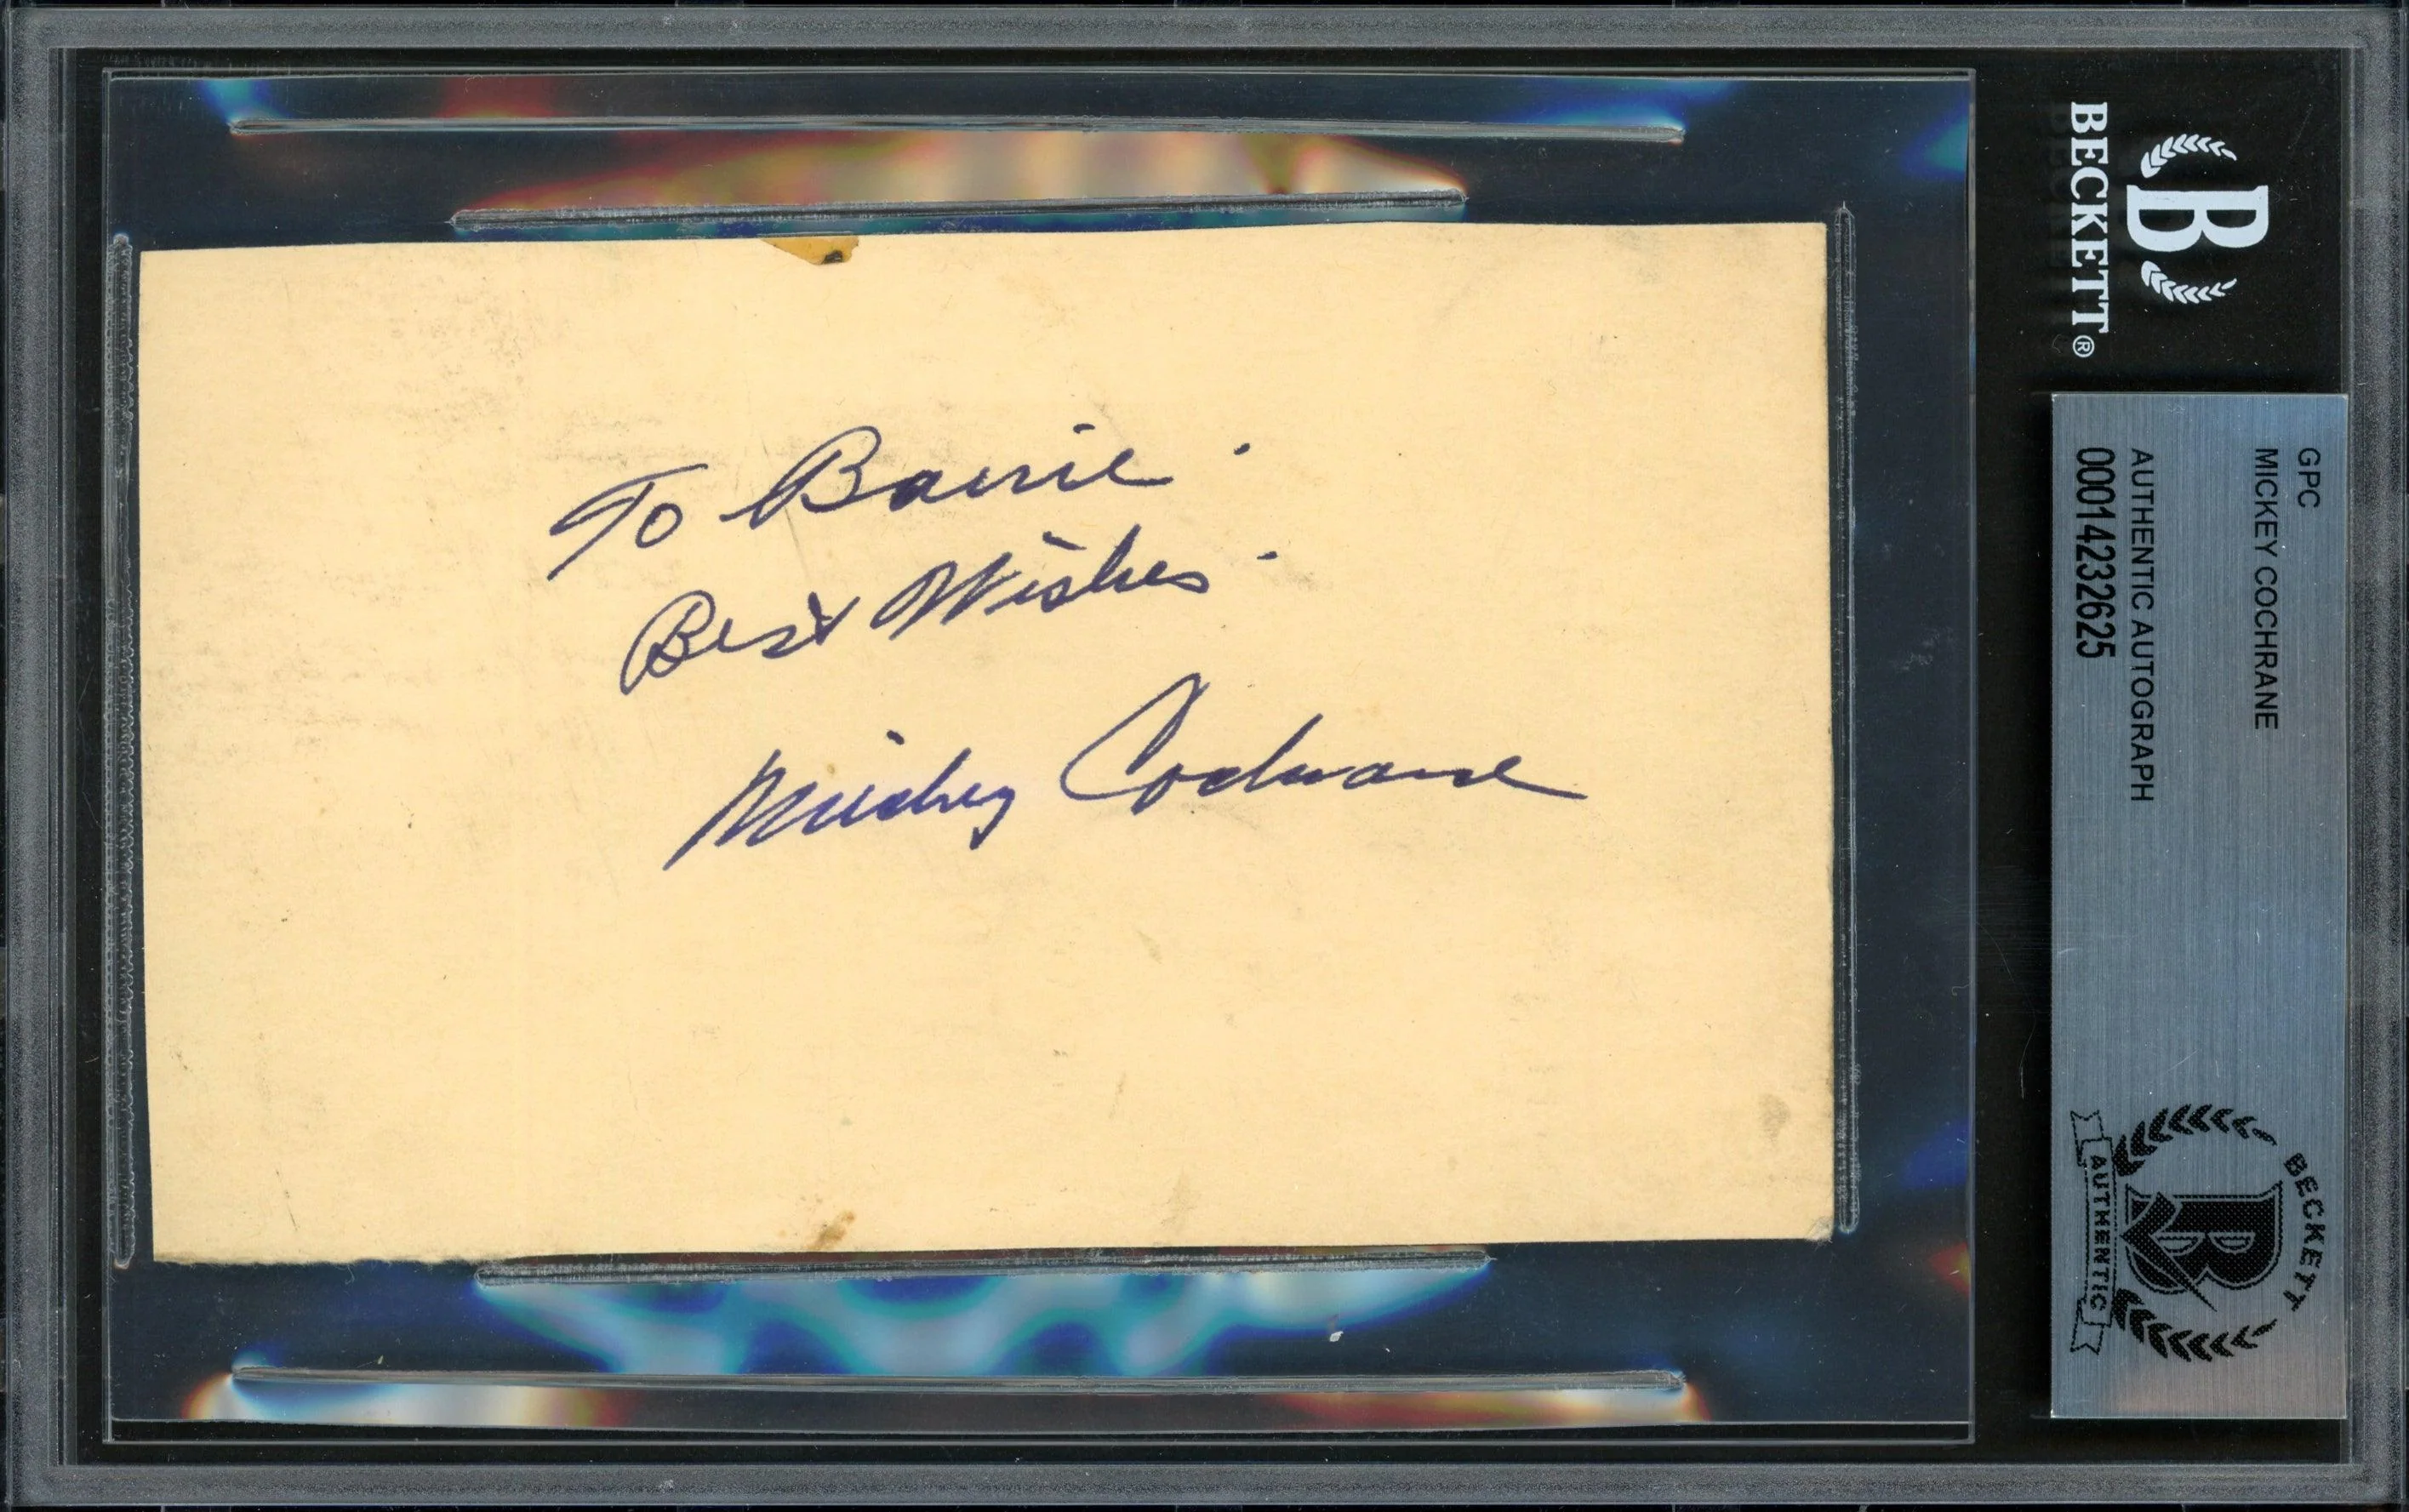 To Barrie
Best Wishes
Mickey Cochrane
BECKETT®
B
GPC
MICKEY COCHRANE
AUTHENTIC AUTOGRAPH
00014232625
BECKETT
B
AUTHENTIC